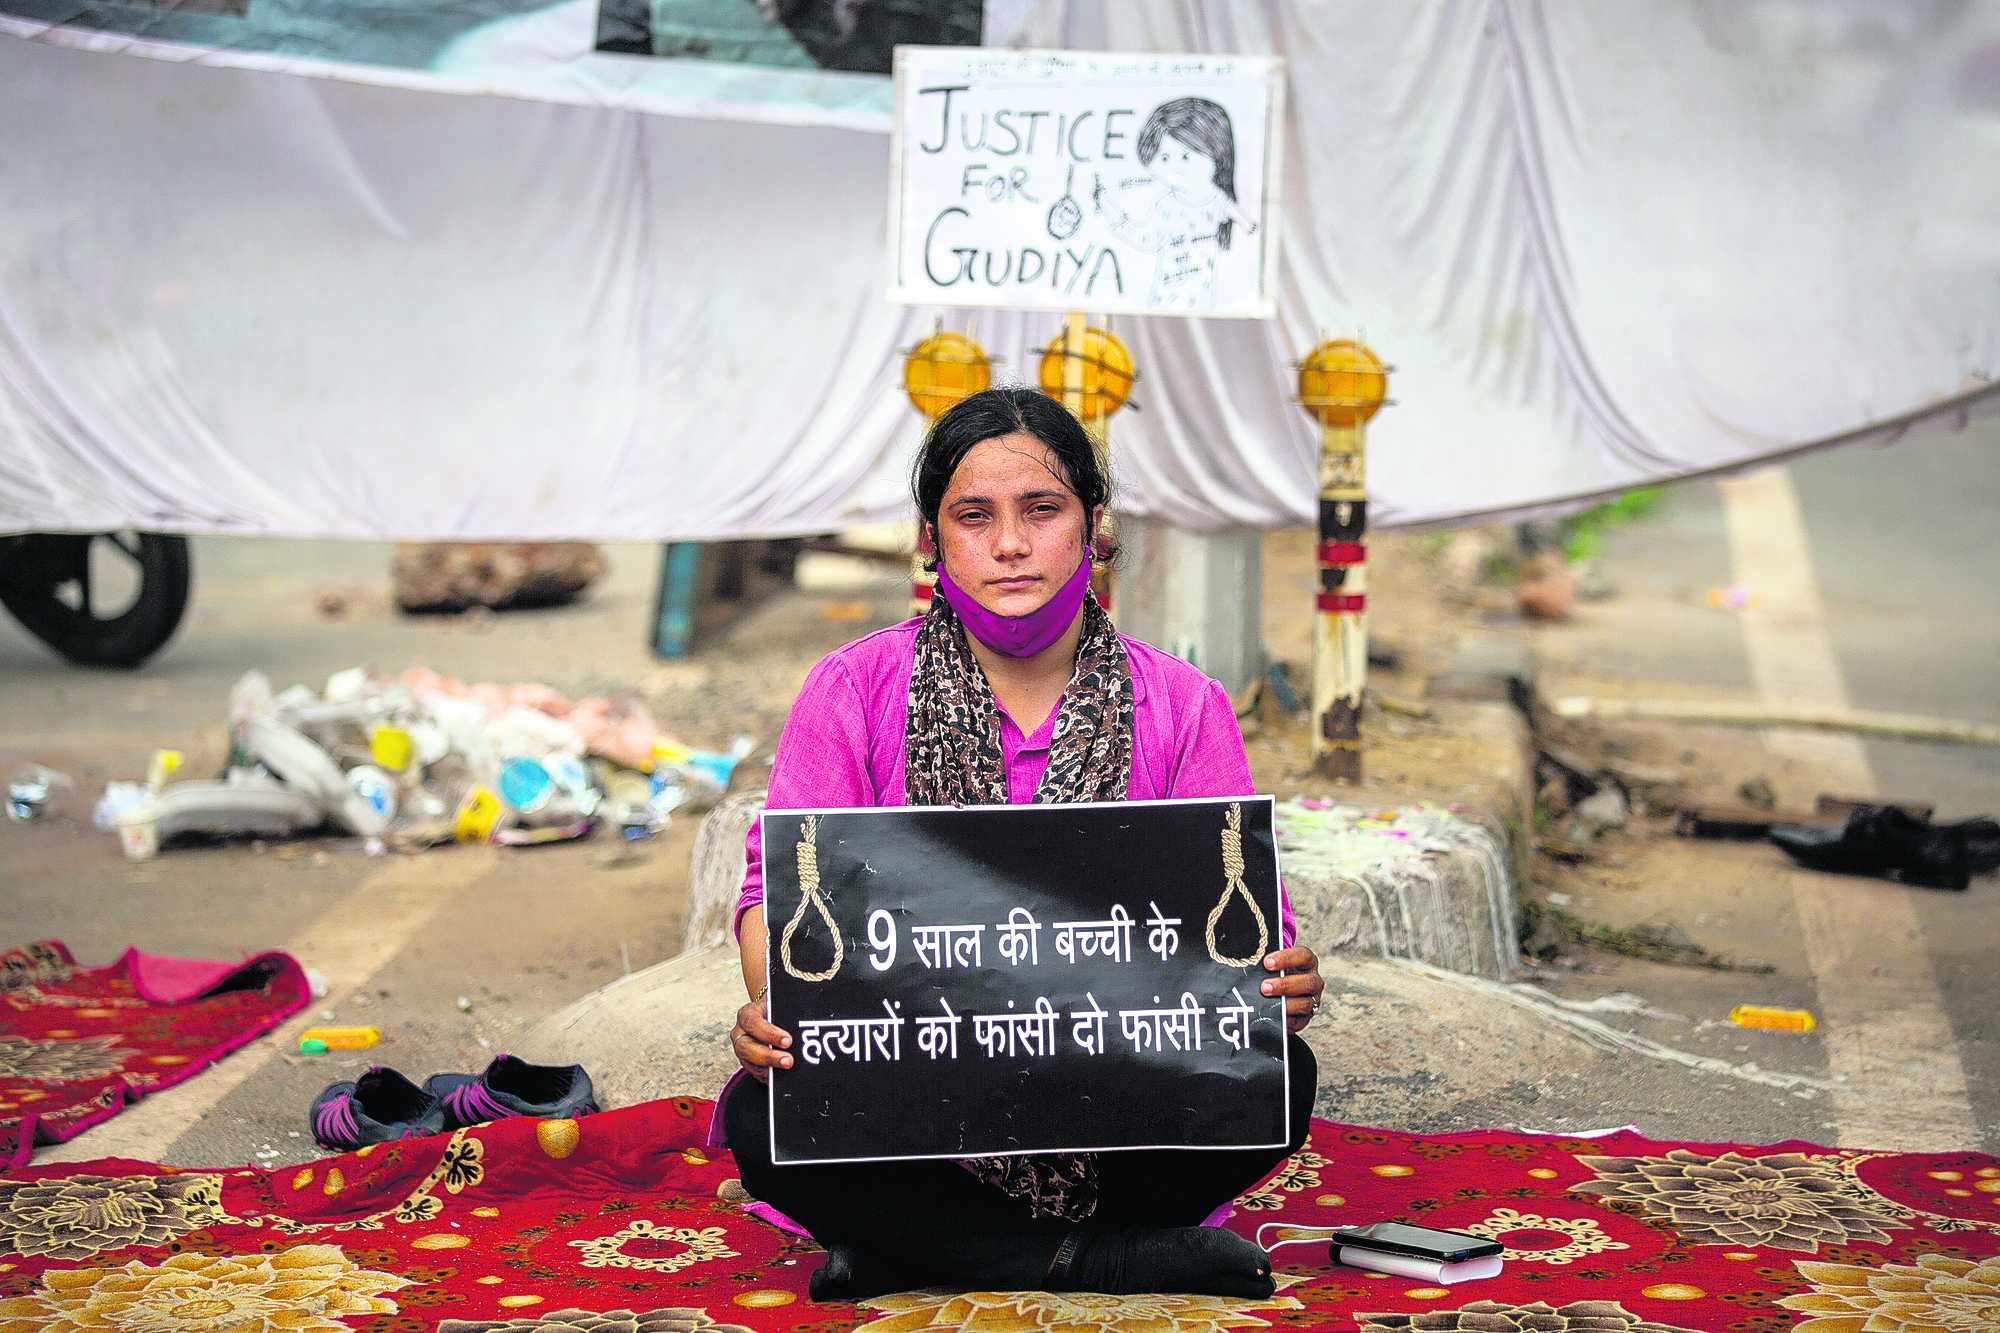 JUSTICE
FOR
GUDIYA
9 साल की बच्ची के
हत्यारों को फांसी दो फांसी दो